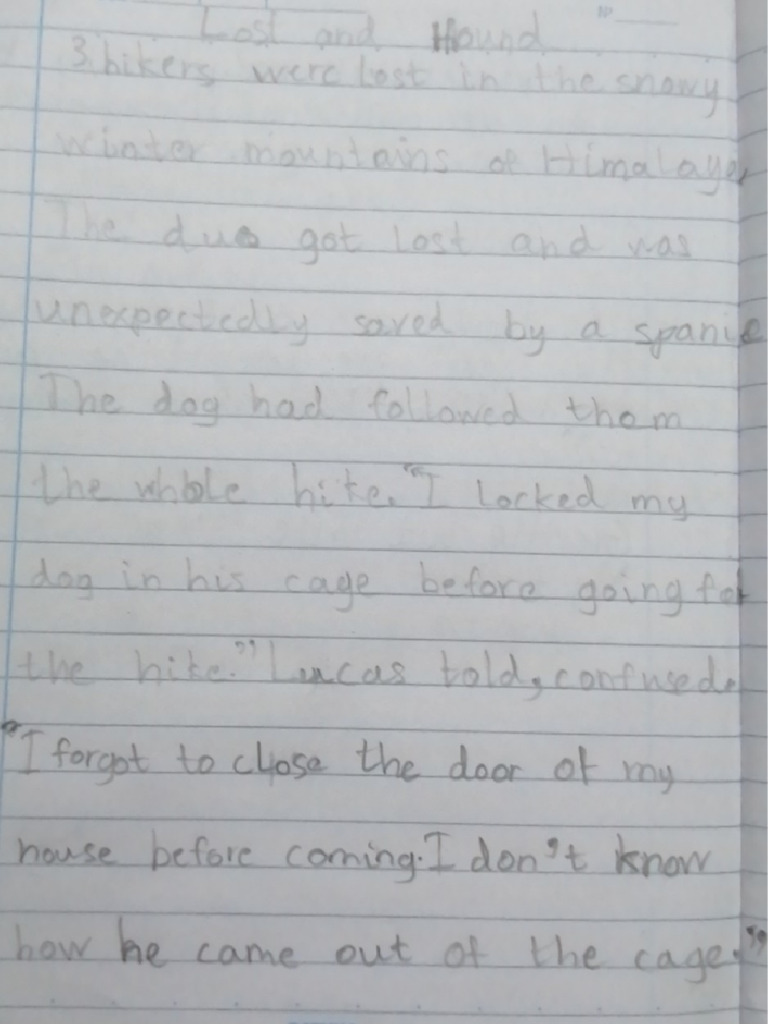 Lost and Hound
3 hikers were lost in the snowy
winter mountains of Himalaya
The duo got lost and was
unexpectedly saved by a spanie
The dog had followed them
the whole hike. "I locked my
dog in his cage before going for
the hike." Lucas told, confused.
"I forgot to close the door of my
house before coming. I don't know
how he came out of the cage."